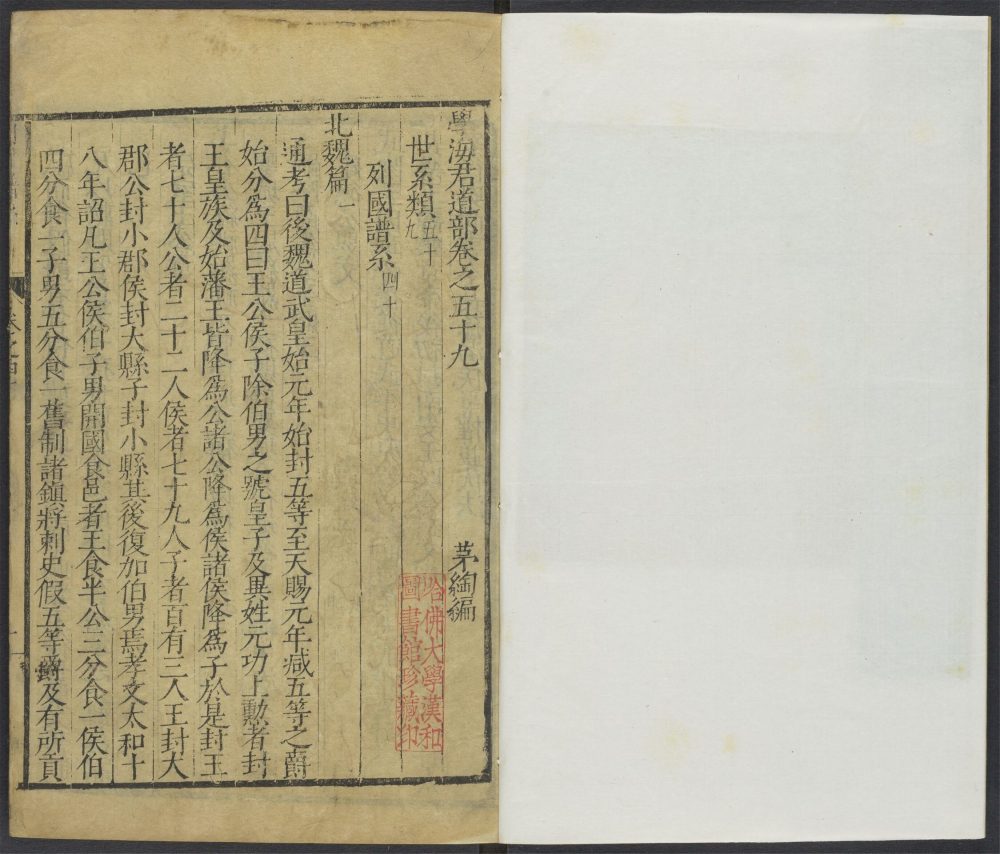 學海君道部卷之五十九
茅綯編
世系類五十九
列國譜系四十
北魏篇一
通考曰後魏道武皇始元年始封五等至天賜元年減五等之爵
始分爲四曰王公侯子除伯男之號皇子及異姓元功上勲者封
王皇族及始藩王皆降爲公諸公降爲侯諸侯降爲子於是封王
者七十人公者二十二人侯者七十九人子者百有三人王封大
郡公封小郡侯封大縣子封小縣其後復加伯男焉孝文太和十
八年詔凡王公侯伯子男開國食邑者王食半公三分食一侯伯
四分食一子男五分食一舊制諸鎮將刺史假五等爵及有所貢
哈佛大學漢和
圖書館珍藏印